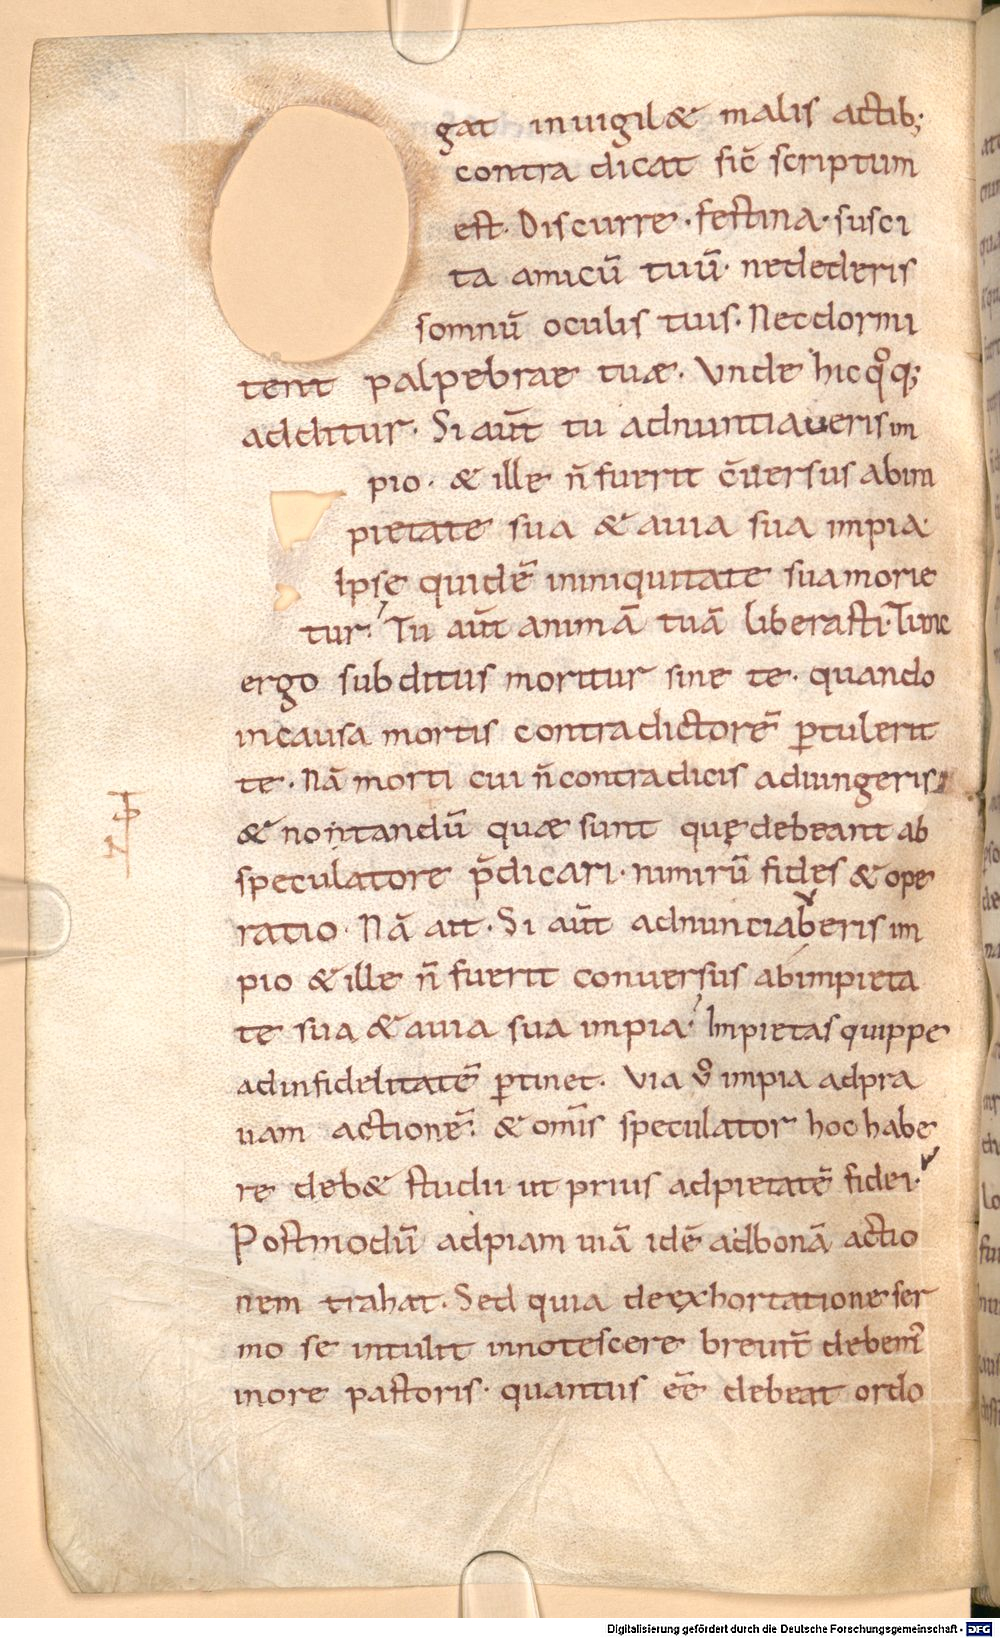 gat inuigil& malis actib;
contra dicat sic̄ scriptum
est. Discurre · festina · susci
ta amicū tuū · nedederis
somnū oculis tuis. Necdormi
tent palpebrae tuæ. Unde hic qͦq;
additur. Si aut̄ tu adnuntiaueris im
pio. & ille n̄ fuerit c̄uersus abim
pietate sua & auia sua impia·
Ipse quidē ininiquitate sua morie
tur. Tu aut̄ animā tuā liberasti. Tunc
ergo subditus moritur sine te. quando
incausa mortis contradictorē ꝑtulerit
te. Nā morti cui n̄ contradicis adiungeris
& notandū quæ sunt quę debeant ab
speculatore p̄dicari. nimirū fides & ope
ratio. Nā ait. Si aut̄ adnunciaberis im
pio & ille n̄ fuerit conuersus abimpieta
te sua & auia sua impia. Impietas quippe
adinfidelitatē ꝑtinet. Via ūo impia adpra
uam actionē. & om̄is speculator hoc habe
re deb& studii ut prius adpietatē fidei.
Postmodū adpiam uiā idē adbonā actio
nem trahat. Sed quia deexhortatione ser
mo se intulit innotescere breuit̄ debem᾿
more pastoris. quantus eē debeat ordo
Digitalisierung gefördert durch die Deutsche Forschungsgemeinschaft - DFG